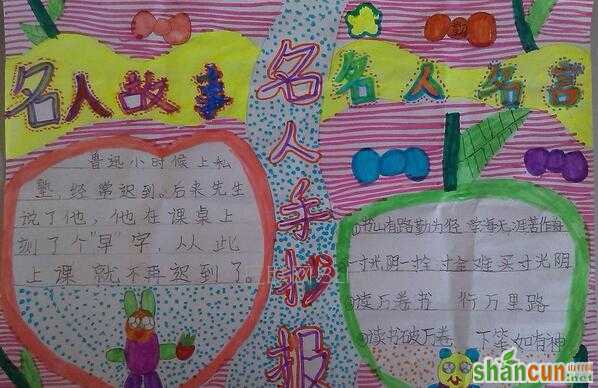 名人故事
名人手抄报
名人名言
鲁迅小时候上私
塾,经常迟到。后来先生
说了他,他在课桌上
刻了个"早"字,从此
上课就不再迟到了。
山有路勤为径 学海无涯苦作
一寸光阴一 寸金难买寸光阴
读万卷书 行万里路
读书破万卷 下笔如有神
shancun
.net